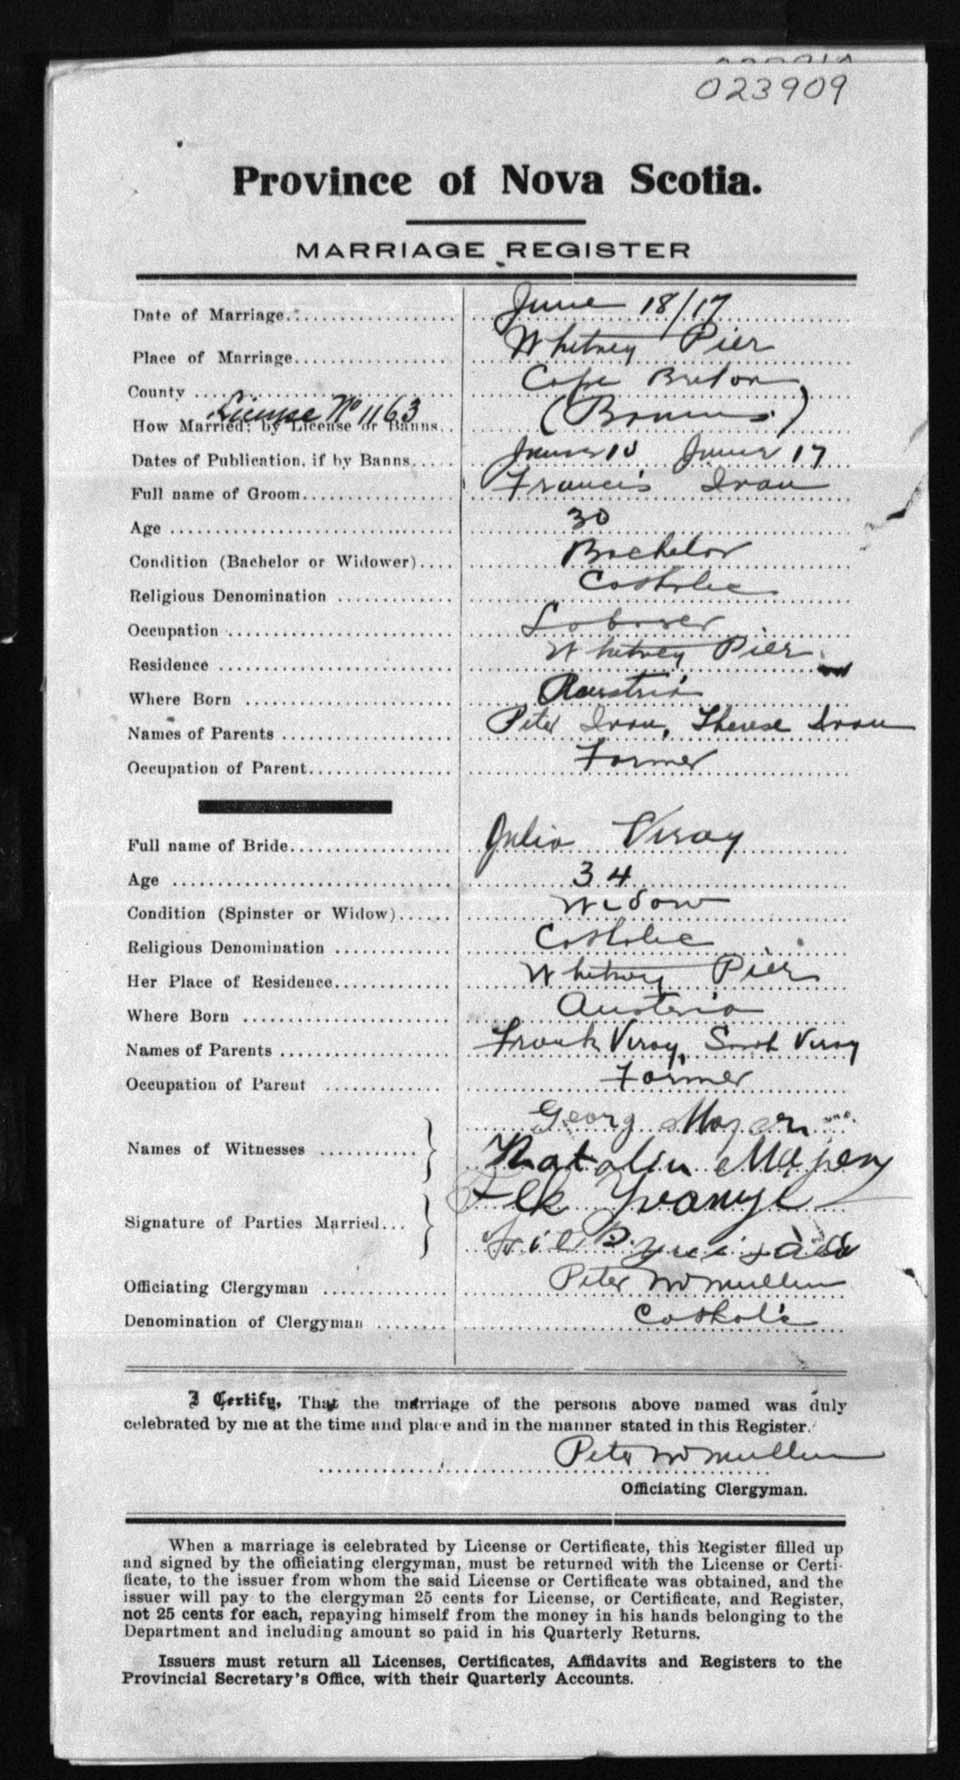 023909
Province of Nova Scotia.
MARRIAGE REGISTER
Date of Marriage June 18/17
Place of Marriage Whitney Pier
County Cape Breton
License No 1163
How Married; by License or Banns (Banns)
Dates of Publication, if by Banns June 10 June 17
Full name of Groom Francis Ivan
Age 30
Condition (Bachelor or Widower) Bachelor
Religious Denomination Catholic
Occupation Laborer
Residence Whitney Pier
Where Born Austria
Names of Parents Peter Ivan, Therese Ivan
Occupation of Parent Farmer
Full name of Bride Julia Viray
Age 34
Condition (Spinster or Widow) Widow
Religious Denomination Catholic
Her Place of Residence Whitney Pier
Where Born Austria
Names of Parents Frank Viray, Viray
Occupation of Parent Farmer
Georg
Names of Witnesses
Signature of Parties Married
Officiating Clergyman Peter McMullin
Denomination of Clergyman Catholic
I Certify, That the marriage of the persons above named was duly
celebrated by me at the time and place and in the manner stated in this Register.
Peter McMullin
Officiating Clergyman.
When a marriage is celebrated by License or Certificate, this Register filled up
and signed by the officiating clergyman, must be returned with the License or Certi-
ficate, to the issuer from whom the said License or Certificate was obtained, and the
issuer will pay to the clergyman 25 cents for License, or Certificate, and Register,
not 25 cents for each, repaying himself from the money in his hands belonging to the
Department and including amount so paid in his Quarterly Returns.
Issuers must return all Licenses, Certificates, Affidavits and Registers to the
Provincial Secretary's Office, with their Quarterly Accounts.